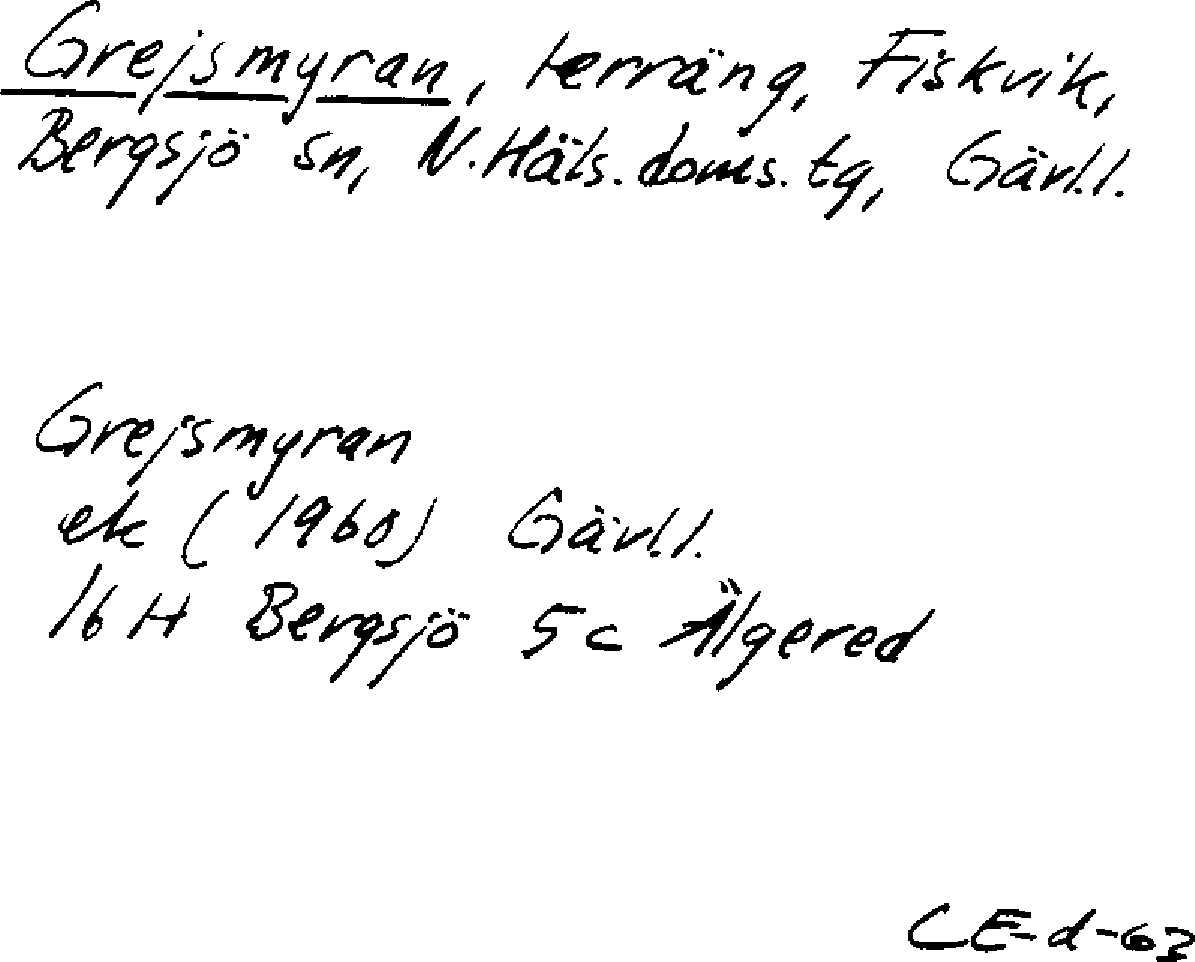 Grejsmyran, terräng, Fiskvik,
Bergsjö sn, N. Häls. doms. tg, Gävl. l.
Grejsmyran
ek (1960) Gävl. l.
16 H Bergsjö 5c Älgered
CE-d-63